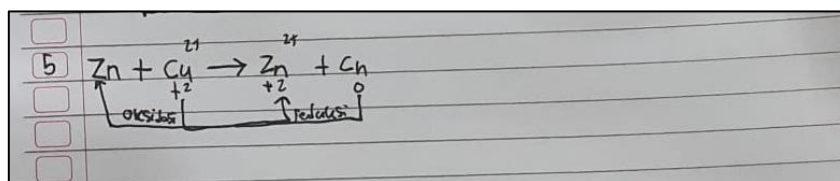 5 Zn + Cu²⁺ → Zn²⁺ + Cn
+2 +2 0
oksidasi reduksi